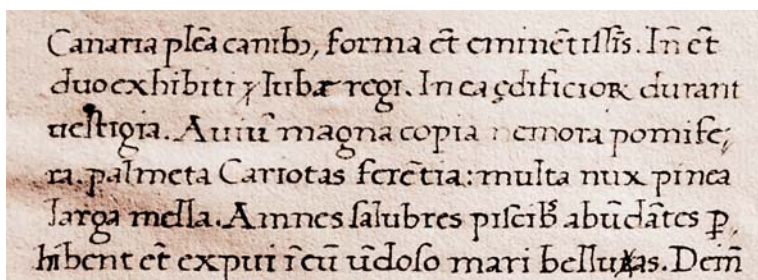 Canaria plēa canibꝫ, forma et̄ eminēt issīs. Iñ et
duo exhibiti ⁊ Iubæ regi. In ea ędificioꝝ durant
uestigia. Auiū magna copia nemora pomife,
ra. palmeta Cariotas ferētia: multa nux pinea
larga mella. Amnes salubres piscib᷒ abūdātes ꝑ,
hibent et̄ expui ī cū ūdoso mari belluas. Deiñ